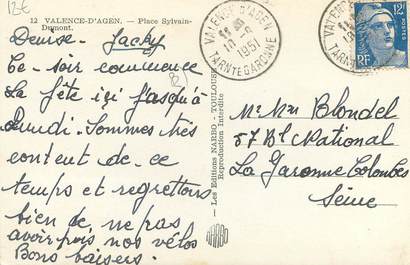 12€
12 VALENCE-D'AGEN. — Place Sylvain-
Dumont.
Denise - Jacky
Ce soir commence
la fête ici jusqu'à
Lundi. Sommes très
content de ce
temps et regrettons
bien de ne pas
avoir pris nos vélos
Bons baisers.
Les Editions NARBO. - TOULOUSE
Reproduction Interdite
NARBO
VALENCE D'AGEN
1951
TARN-ET-GARONNE
12F
RF
Mr Mme Blondel
57 Bd National
La Garenne Colombes
Seine